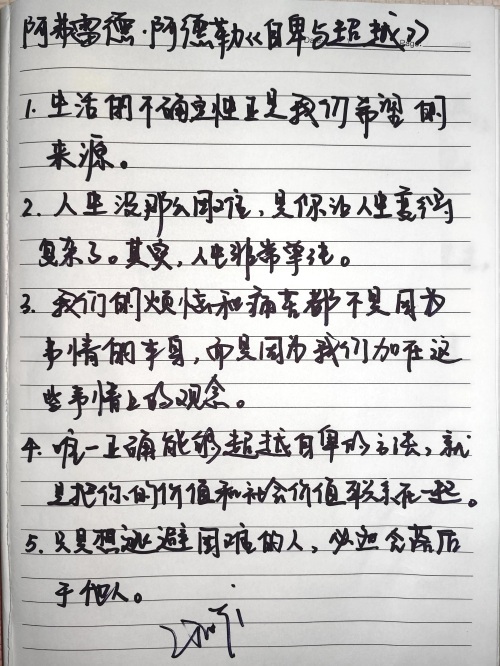 阿弗雷德·阿德勒《自卑与超越》
1. 生活的不确定性正是我们希望的
来源。
2. 人生没那么困难,是你让人生变得
复杂了。其实,人生非常单纯。
3. 我们的烦恼和痛苦都不是因为
事情的本身,而是因为我们加在这
些事情上的观念。
4. 唯一正确能够超越自卑的方法,就
是把你的价值和社会价值联系在一起。
5. 只是想逃避困难的人,必定会落后
于他人。